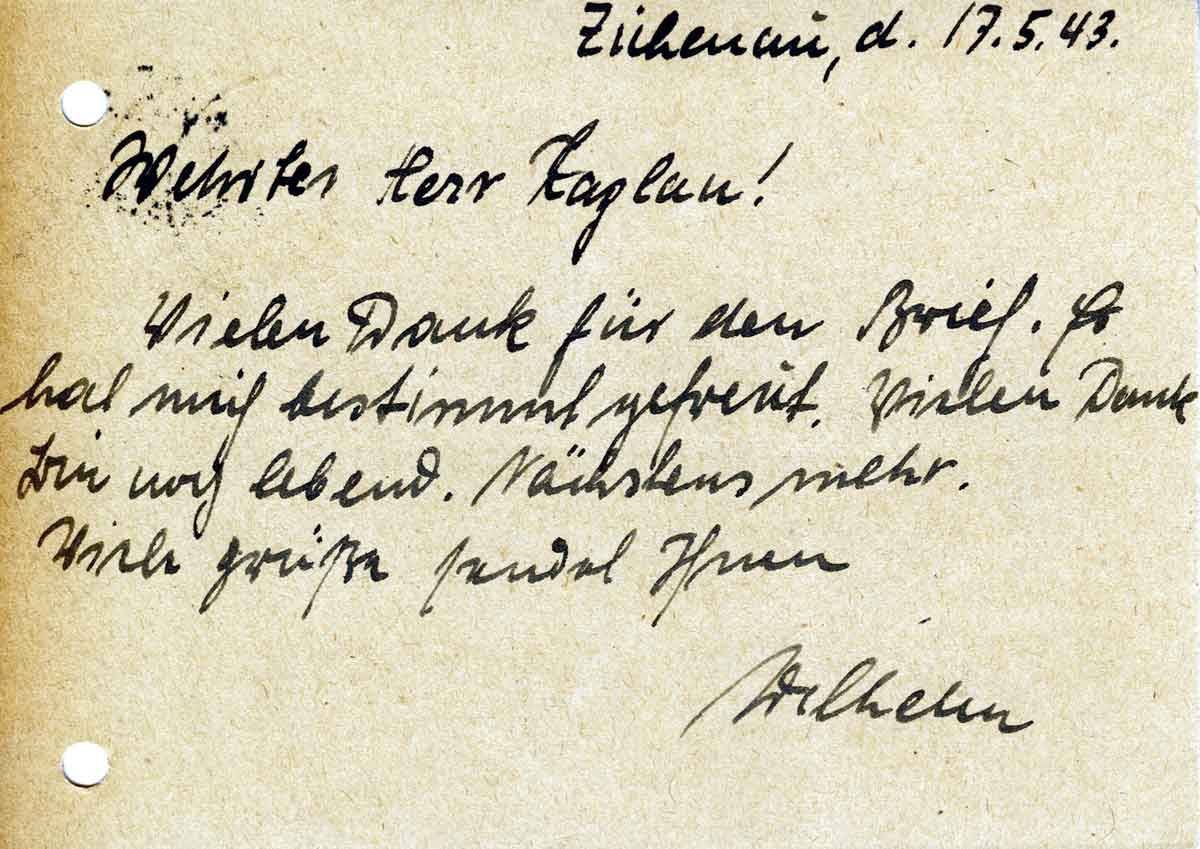 Zichenau, d. 17.5.43.
Wehrter Herr Kaplan!
Vielen Dank für den Brief. Er
hat mich bestimmt gefreut. Vielen Dank
bin noch lebend. Nächstens mehr.
Viele grüße sendet Ihnen
Wilhelm